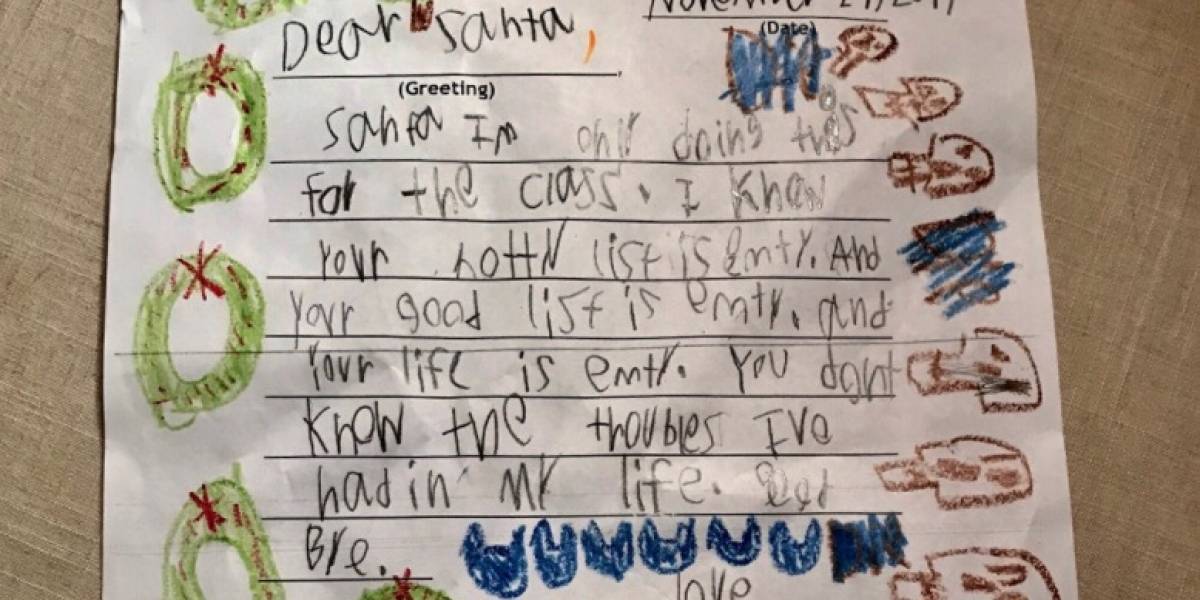 Dear Santa,
(Date)
(Greeting)
Santa Im only doing this
for the class. I know
your notty list is emty. And
your good list is emty. and
Your life is emty. You dont
know the troubles Ive
had in my life. Good
Bye.
love